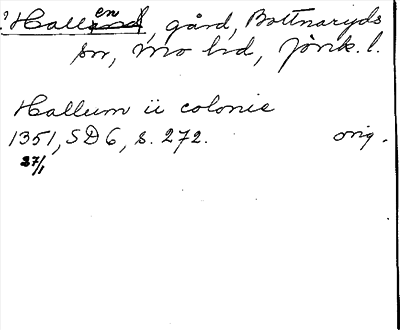 ? Hallen, gård, Bottnaryds
sn, Mo hd, Jönk. l.
Hallum ii colonie
1351, SD 6, s. 272. orig.
27/1